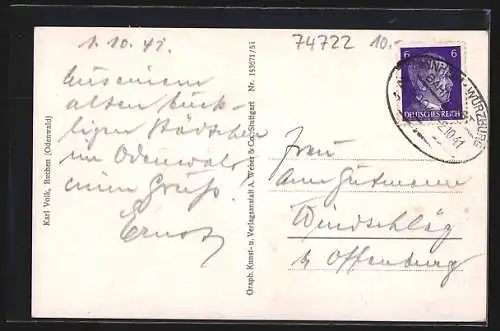 1.10.41.
74722 10.-
Aus einem
alten buck-
ligen Städtchen
im Odenwald
einen Gruß.
Ernst
Karl Volk, Buchen (Odenwald)
Graph. Kunst- u. Verlagsanstalt A. Weber & Co., Stuttgart Nr. 193671/51
6 6
DEUTSCHES REICH
WÜRZBURG
2.10.41
Frau
Gutmann
Windschläg
b. Offenburg